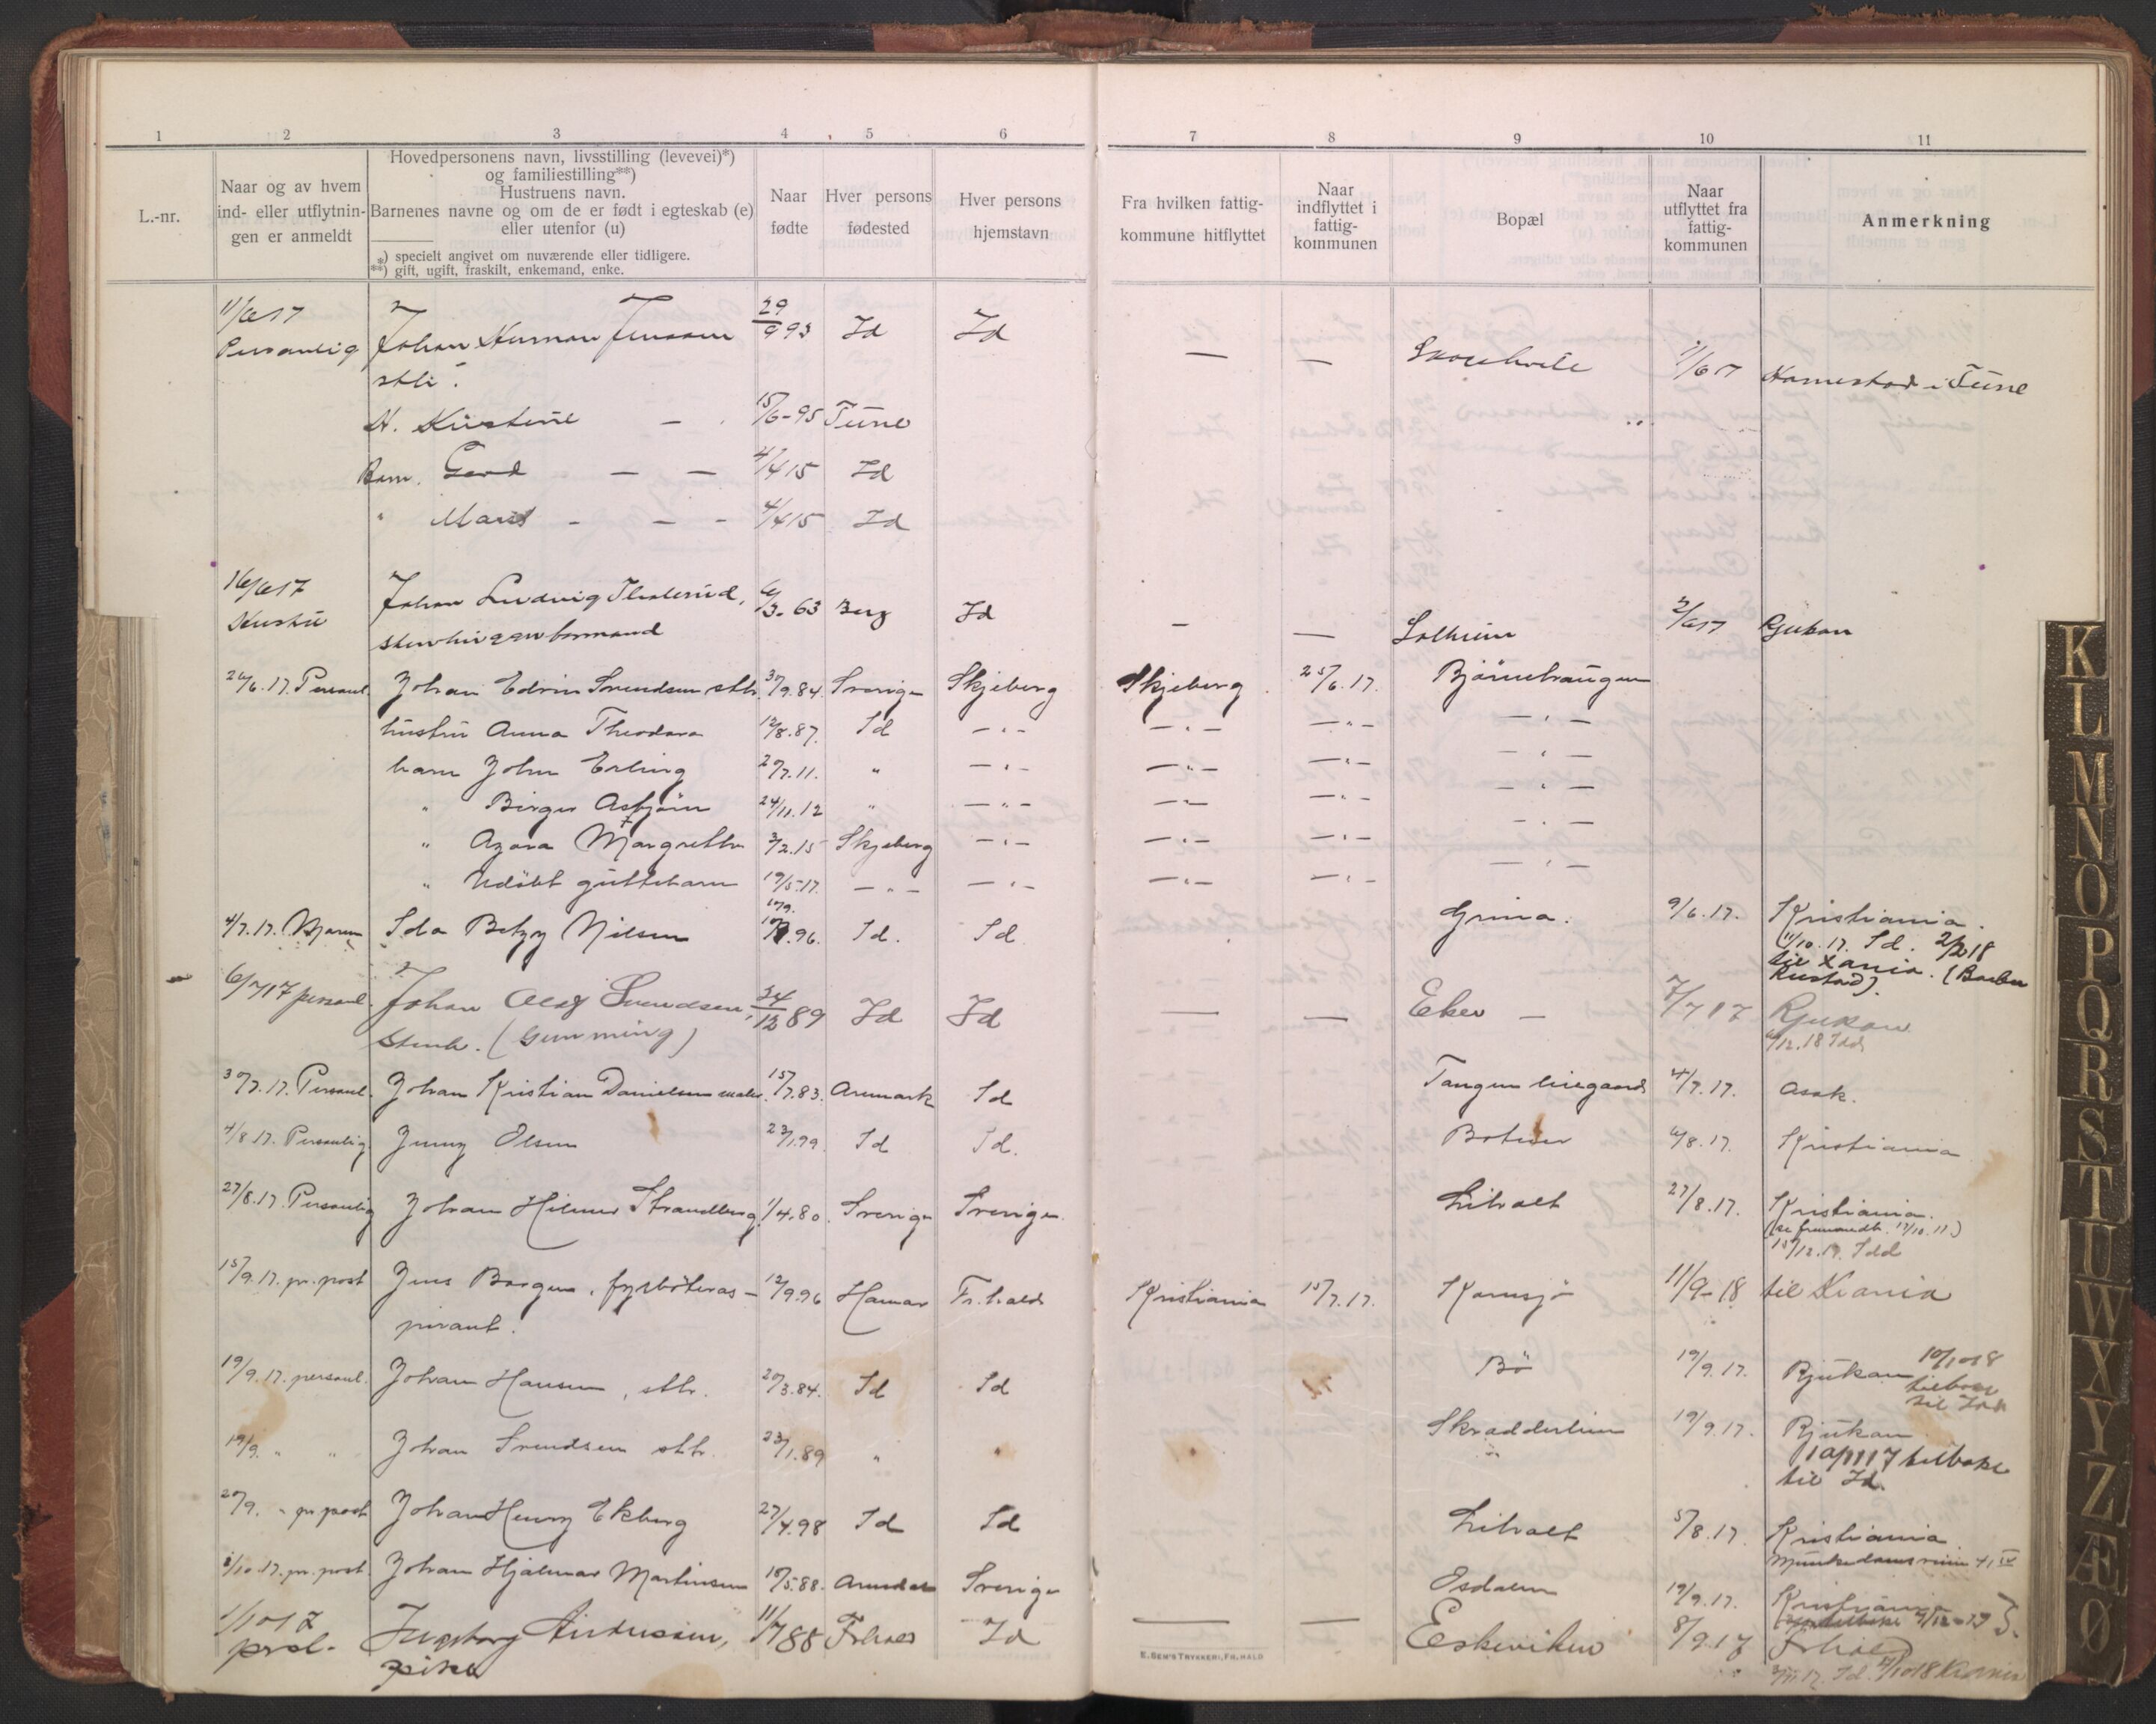 1 2 3 4 5 6 7 8 9 10 11
L.-nr.
Naar og av hvem
ind- eller utflytnin-
gen er anmeldt
Hovedpersonens navn, livsstilling (levevei)*)
og familiestilling**)
Hustruens navn.
Barnenes navne og om de er født i egteskab (e)
eller utenfor (u)
*) specielt angivet om nuværende eller tidligere.
**) gift, ugift, fraskilt, enkemand, enke.
Naar
fødte
Hver persons
fødested
Hver persons
hjemstavn
Fra hvilken fattig-
kommune hitflyttet
Naar
indflyttet i
fattig-
kommunen
Bopæl
Naar
utflyttet fra
fattig-
kommunen
Anmerkning
11/6 17 Johan Herman Jensen 29/9 93 Id Id — —
Personlig
sthr. i Tune
H. Kristine — 15/6-95 Tune
Barn. Gerd — — 4/4 15 Id
" Marit - - - 4/4 15 Id
16/6 17 Johan Ludvig 6/3-63 Berg Id — — Solheim 2/6 17 Rjukan
Hustru
26/6.17. Personl. Johan Edvin Svendsen sthr. 30/9.84. Sverige Skjeberg Skjeberg 25/6.17. Bjørnehaugen
hustru Anna Theodora 12/8.87. Id — " — — " — — " — — " —
barn John Erling 20/7.11. " — " — — " — — " — — " —
" Birger Asbjørn 24/11.12 " — " — — " — — " — — " —
" Azora Margrethe 3/2.15 Skjeberg — " — — " — — " — — " —
" Udøbt guttebarn 19/5.17. — " — — " — — " — — " — — " —
4/7.17. Ida Betzy Nilsen 96. Id. Id Grina. 9/6.17. Kristiania.
11/10.17. Id. 2/2 18
til Xania.
6/7 17 personl. Johan Olaf Svendsen, 24/12 89 Id Id — — Eker — 7/7 17 Rjukan
stenh. (Gunming) 12.18 Idd
30/7.17. Personl. Johan Kristian Danielsen maler. 15/7.83. Aremark Id Tangen 4/7.17. Asak.
4/8.17. Personlig. Jenny Olsen 23/1.99. Id Id. Botner 6/8.17. Kristiania
27/8.17. Personlig Johan Hilmer Strandberg 1/4.80. Sverige Sverige. Liholt 27/8.17. Kristiania.
15/12.17. Idd
15/9.17. pr. post Jens Borgen, fyrbøteras- 12/9.96 Hamar Fr.hald Kristiania 15/7.17. Kornsjø 11/9-18 til Kiania
pirant.
19/9.17. personl. Johan Hansen, sthr. 20/3.84. Id Id Bø 19/9.17. Rjukan 10/10 18
tilbake
til Idd
19/9. " " Johan Svendsen sthr. 23/1.89 " " Skradderlien 19/9.17. Rjukan
tilbake
til Id.
20/9. " pr. post Johan Henry Ekberg 27/4.98 Id Id Liholt 5/8.17. Kristiania
1/10.17. pr. post. Johan Hjalmar Martinsen 10/5.88. Sverige Osdalen 19/9.17. Kristiania
1/10 17 Ingeborg Andersen, 11/7 88 Frhald Id — — Eskeviken 8/9.17 Frhald
prsl.
pike
Id.
E. SEM'S TRYKKERI, FR.HALD
K
L
M
N
O
P
Q
R
S
T
U
W
X
Y
Z
Æ
Ø